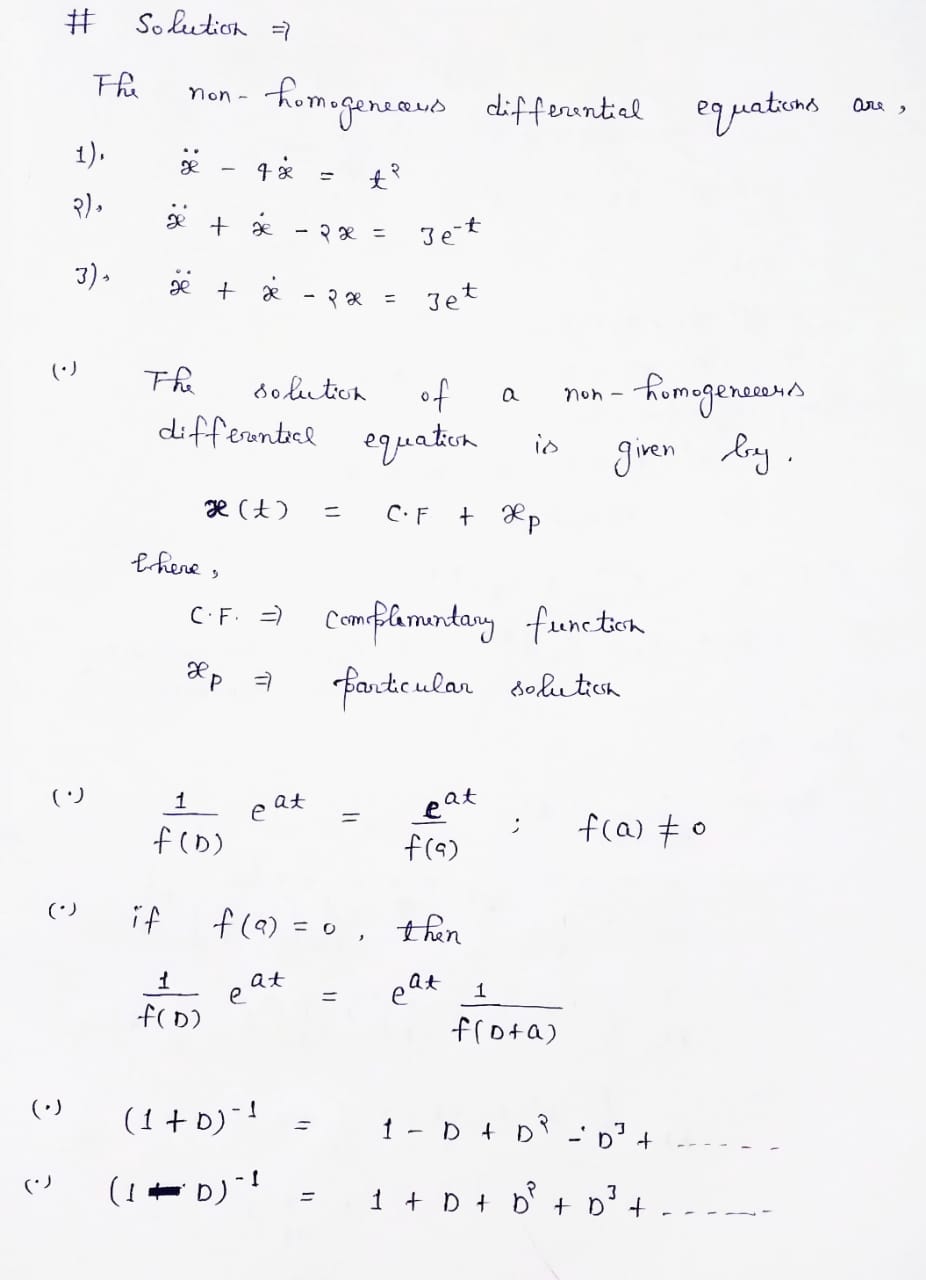 # Solution ⇒
The non-homogeneous differential equations are,
1). ẍ - 4ẋ = t²
2). ẍ + ẋ - 2x = 3e^-t
3). ẍ + ẋ - 2x = 3e^t
(·) The solution of a non-homogeneous
differential equation is given by.
x(t) = C.F + x_p
Where,
C.F. ⇒ complementary function
x_p ⇒ particular solution
(·) 1/f(D) e^at = e^at/f(a) ; f(a) ≠ 0
(·) if f(a) = 0, then
1/f(D) e^at = e^at 1/f(D+a)
(·) (1 + D)^-1 = 1 - D + D² - D³ + ------
(·) (1 - D)^-1 = 1 + D + D² + D³ + ------